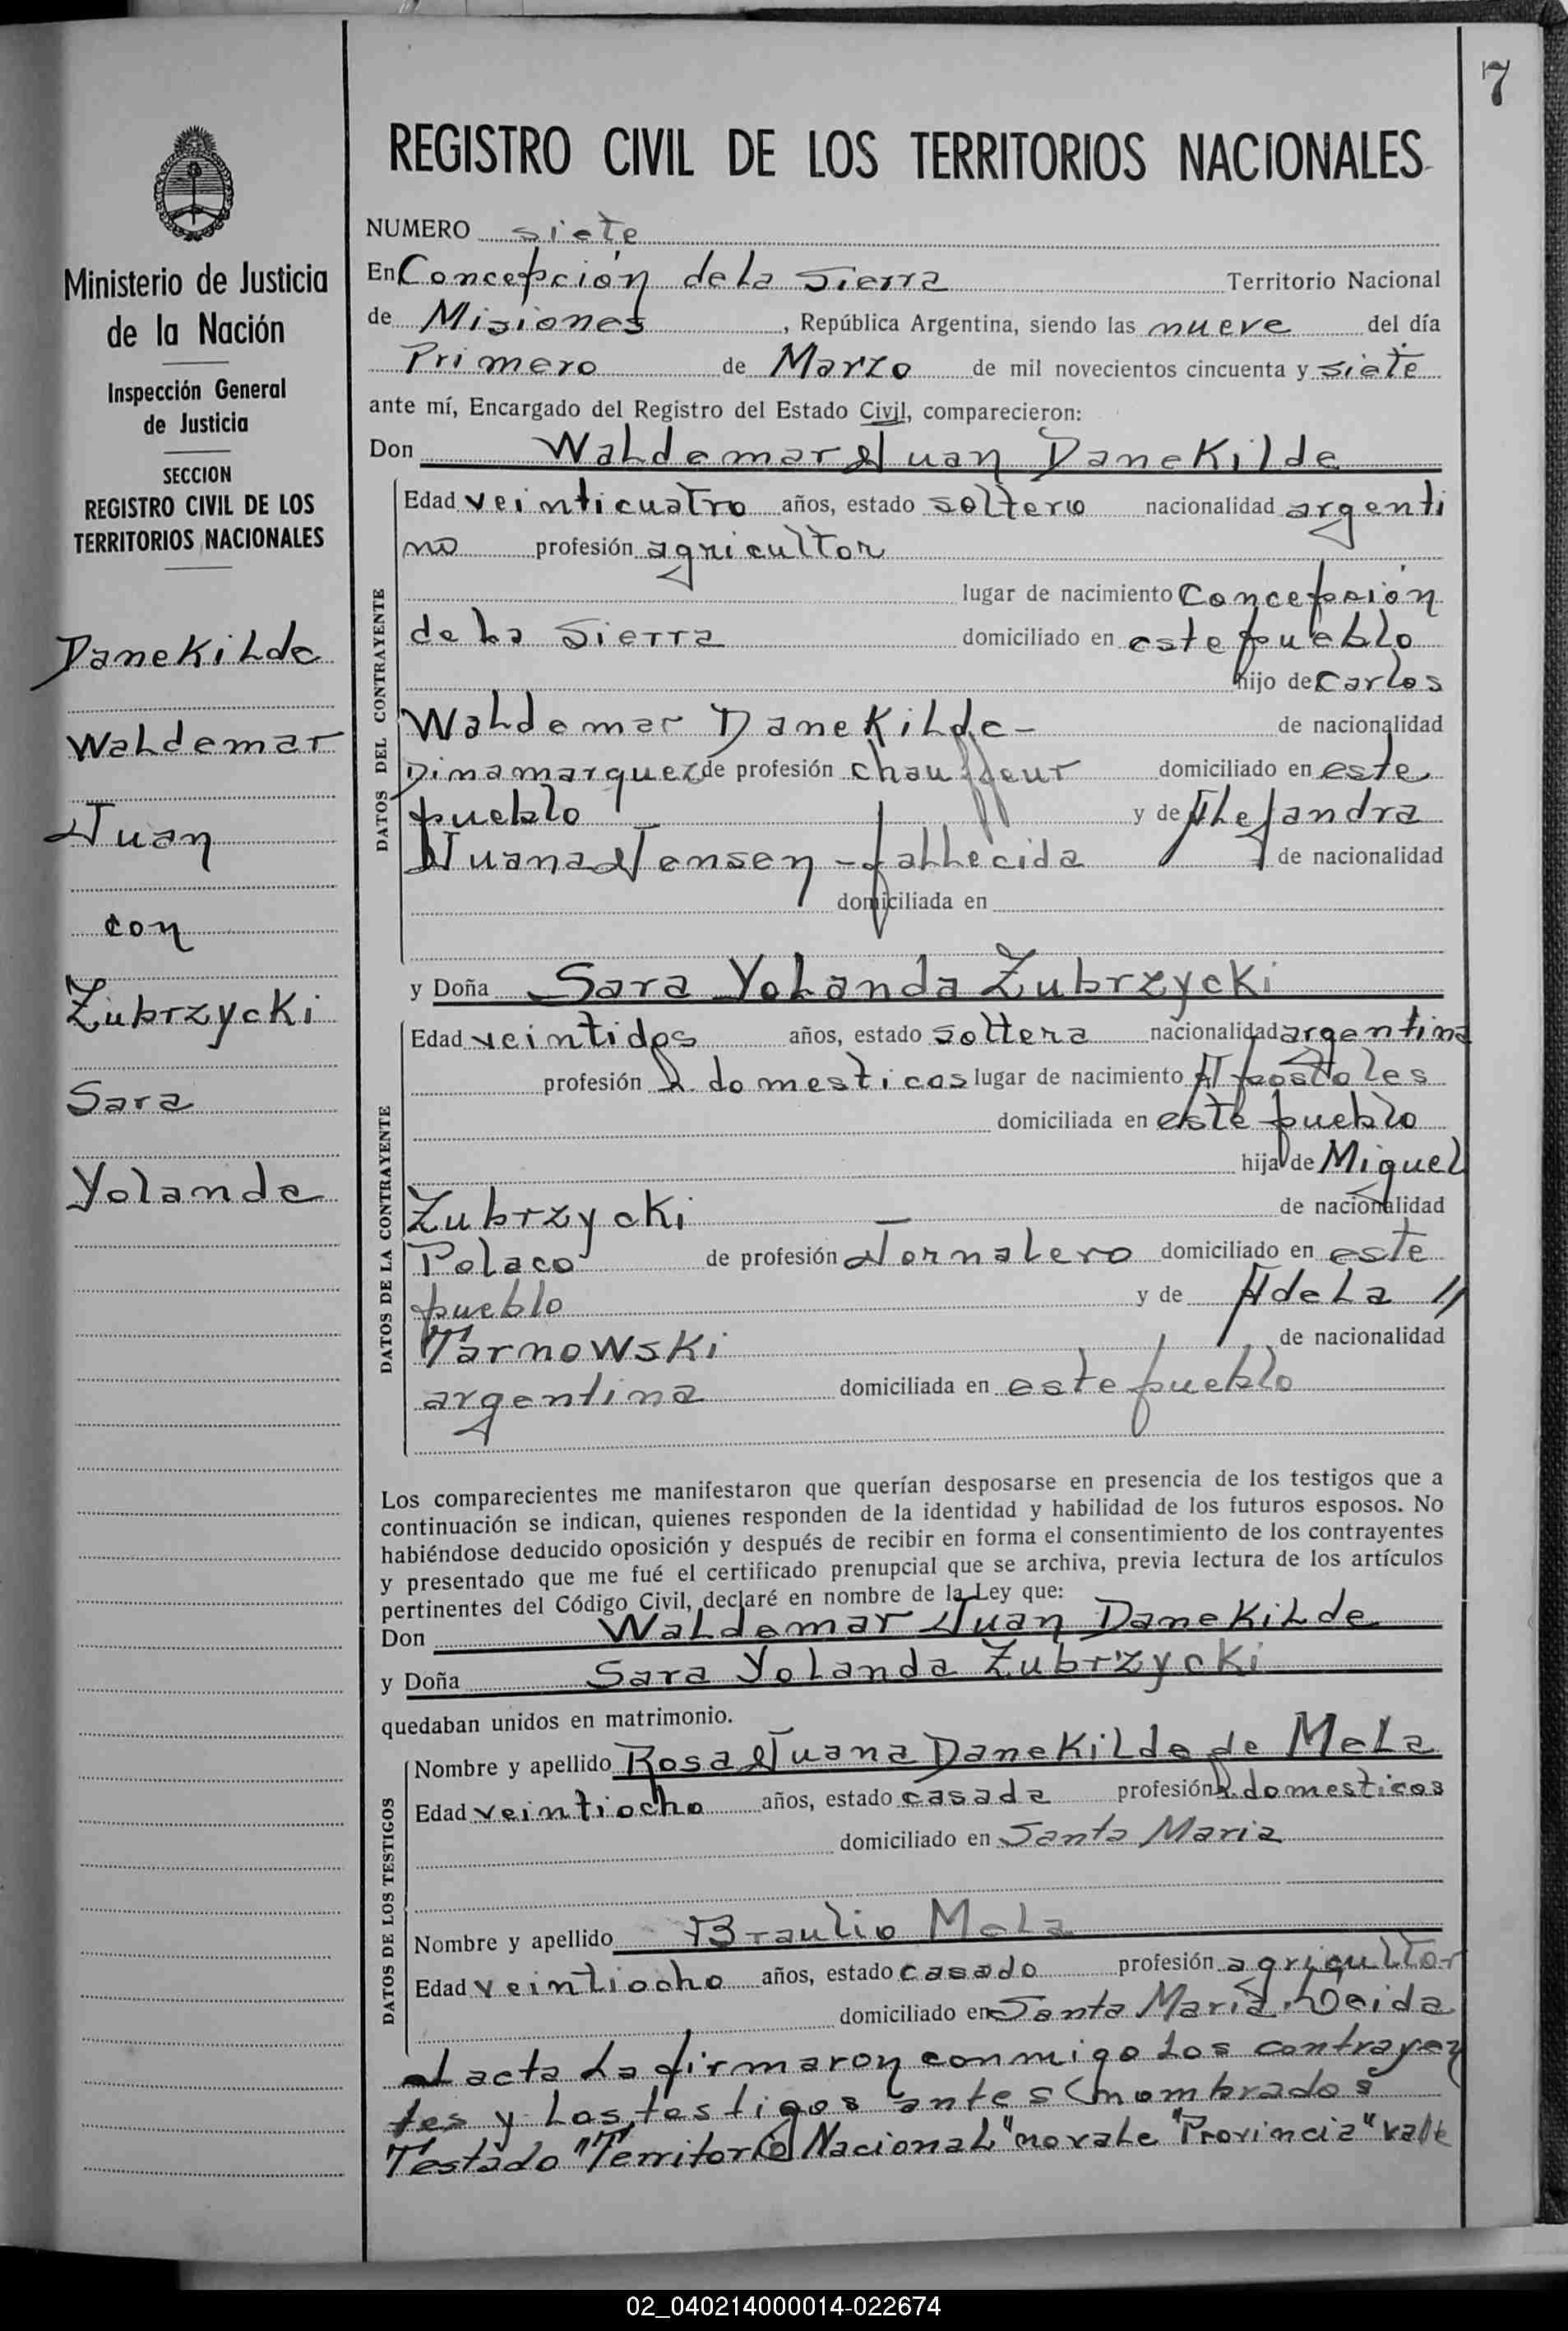 7
REGISTRO CIVIL DE LOS TERRITORIOS NACIONALES
Ministerio de Justicia
de la Nación
Inspección General
de Justicia
SECCION
REGISTRO CIVIL DE LOS
TERRITORIOS NACIONALES
Danekilde
Waldemar
Juan
con
Zubrzycki
Sara
Yolanda
NUMERO siete
En Concepción de la Sierra Territorio Nacional
de Misiones, República Argentina, siendo las nueve del día
Primero de Marzo de mil novecientos cincuenta y siete
ante mí, Encargado del Registro del Estado Civil, comparecieron:
Don Waldemar Juan Danekilde
DATOS DEL CONTRAYENTE
Edad veinticuatro años, estado soltero nacionalidad argenti
no profesión agricultor
lugar de nacimiento Concepción
de la Sierra domiciliado en este pueblo
hijo de Carlos
Waldemar Danekilde- de nacionalidad
Dinamarquez de profesión chauffeur domiciliado en este
pueblo y de Alejandra
Juana Jensen - fallecida de nacionalidad
domiciliada en
y Doña Sara Yolanda Zubrzycki
DATOS DE LA CONTRAYENTE
Edad veintidos años, estado soltera nacionalidad argentina
profesión q. domesticos lugar de nacimiento Apostoles
domiciliada en este pueblo
hija de Miguel
Zubrzycki de nacionalidad
Polaco de profesión Jornalero domiciliado en este
pueblo y de Adela //
Tarnowski de nacionalidad
argentina domiciliada en este pueblo
Los comparecientes me manifestaron que querían desposarse en presencia de los testigos que a
continuación se indican, quienes responden de la identidad y habilidad de los futuros esposos. No
habiéndose deducido oposición y después de recibir en forma el consentimiento de los contrayentes
y presentado que me fué el certificado prenupcial que se archiva, previa lectura de los artículos
pertinentes del Código Civil, declaré en nombre de la Ley que:
Don Waldemar Juan Danekilde
y Doña Sara Yolanda Zubrzycki
quedaban unidos en matrimonio.
DATOS DE LOS TESTIGOS
Nombre y apellido Rosa Juana Danekilde de Mela
Edad veintiocho años, estado casada profesión q domesticos
domiciliado en Santa Maria
Nombre y apellido Braulio Mela
Edad veintiocho años, estado casado profesión agricultor
domiciliado en Santa Maria. Leida
el acta la firmaron conmigo los contrayen
tes y los testigos antes nombrados
Testado "Territorio Nacional" no vale "Provincia" vale
02_040214000014-022674